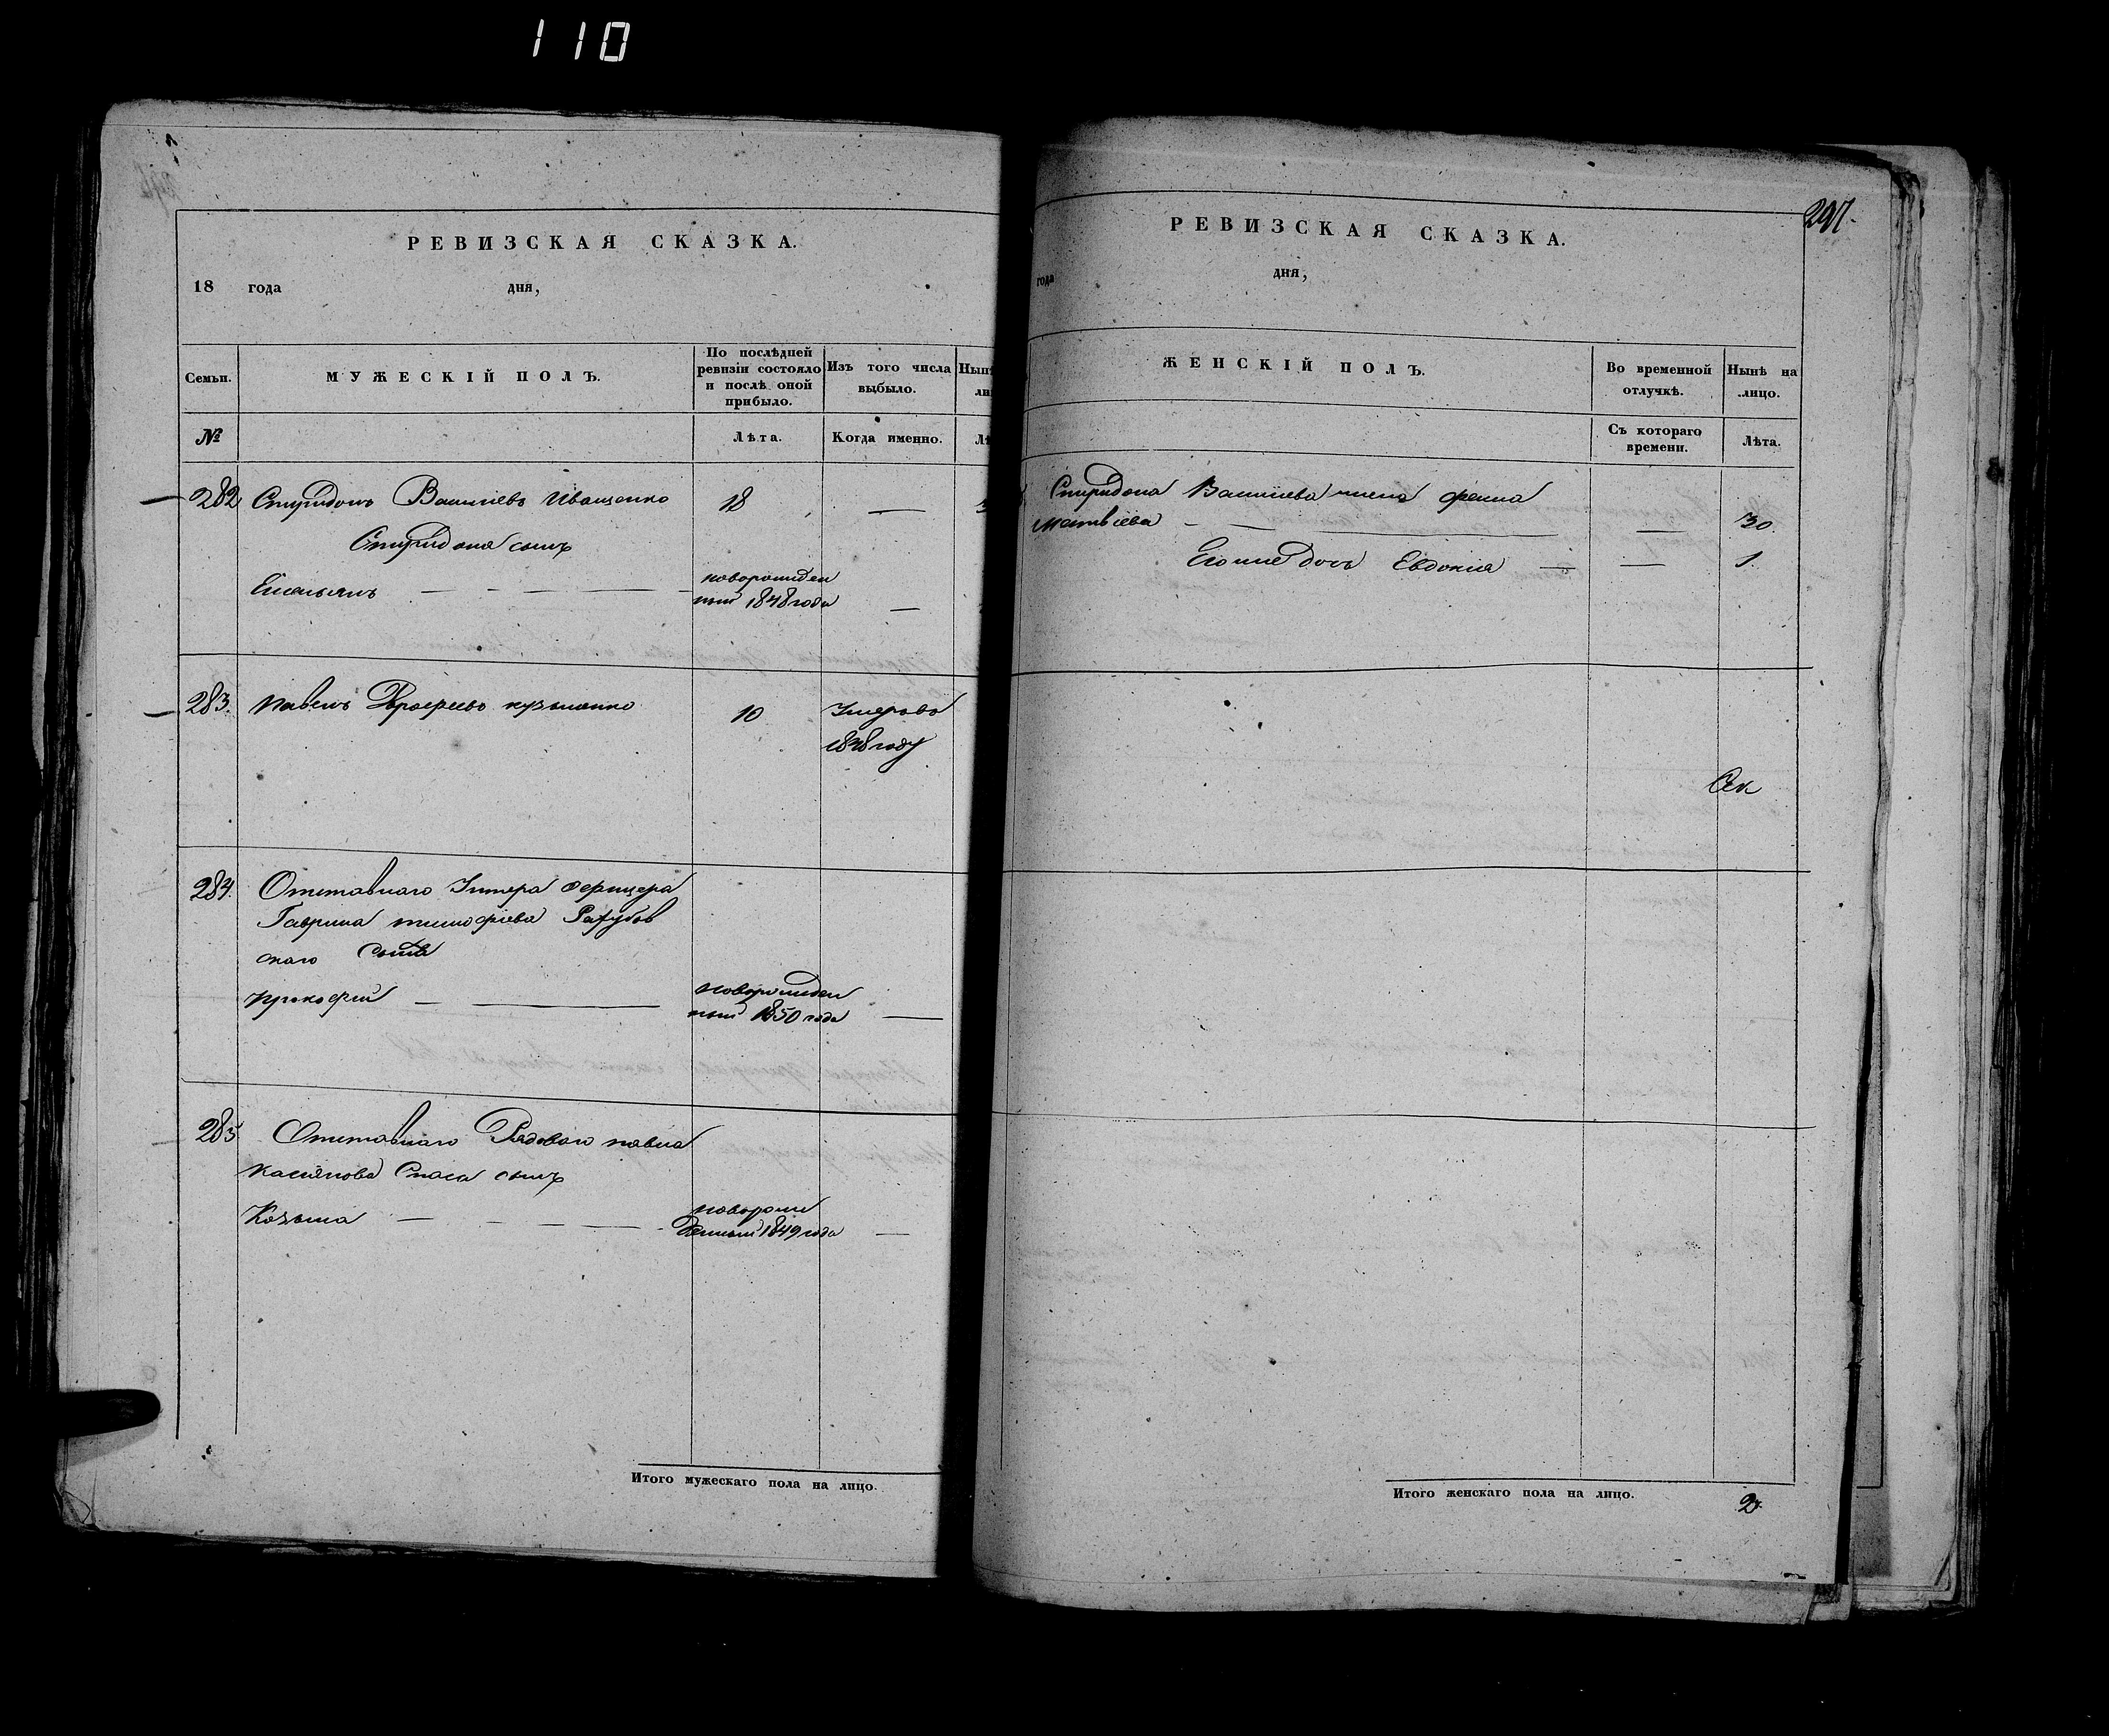 110
РЕВИЗСКАЯ СКАЗКА.
18 года дня,
Семьи.
МУЖЕСКІЙ ПОЛЪ.
По послѣдней ревизіи состояло и послѣ оной прибыло.
Изъ того числа выбыло.
№
Лѣта.
Когда именно.
282 Спиридонъ Васильевъ Иващенко 18 —
Спиридона сынъ
Емельянъ — новорожден
ный 1848 года —
283. Павелъ Ерофеевъ Кузьменко 10 Умеръ въ
1838 году
284. Отставнаго Унтера офицера
Гаврила Тимофіева
скаго сынъ
Прокофій — новорожден
ный 1850 года —
285 Отставнаго Рядоваго Павла
Касіянова Спаса сынъ
Козьма — новорож
денный 1849 года —
Итого мужескаго пола на лицо.
297.
РЕВИЗСКАЯ СКАЗКА.
года дня,
ЖЕНСКІЙ ПОЛЪ.
Во временной отлучкѣ.
Нынѣ на лицо.
Съ котораго времени.
Лѣта.
Спиридона Васильева жена Фекла
Матвіева — — 30.
Его же дочь Евдокія — — 1.
Итого женскаго пола на лицо. 2.